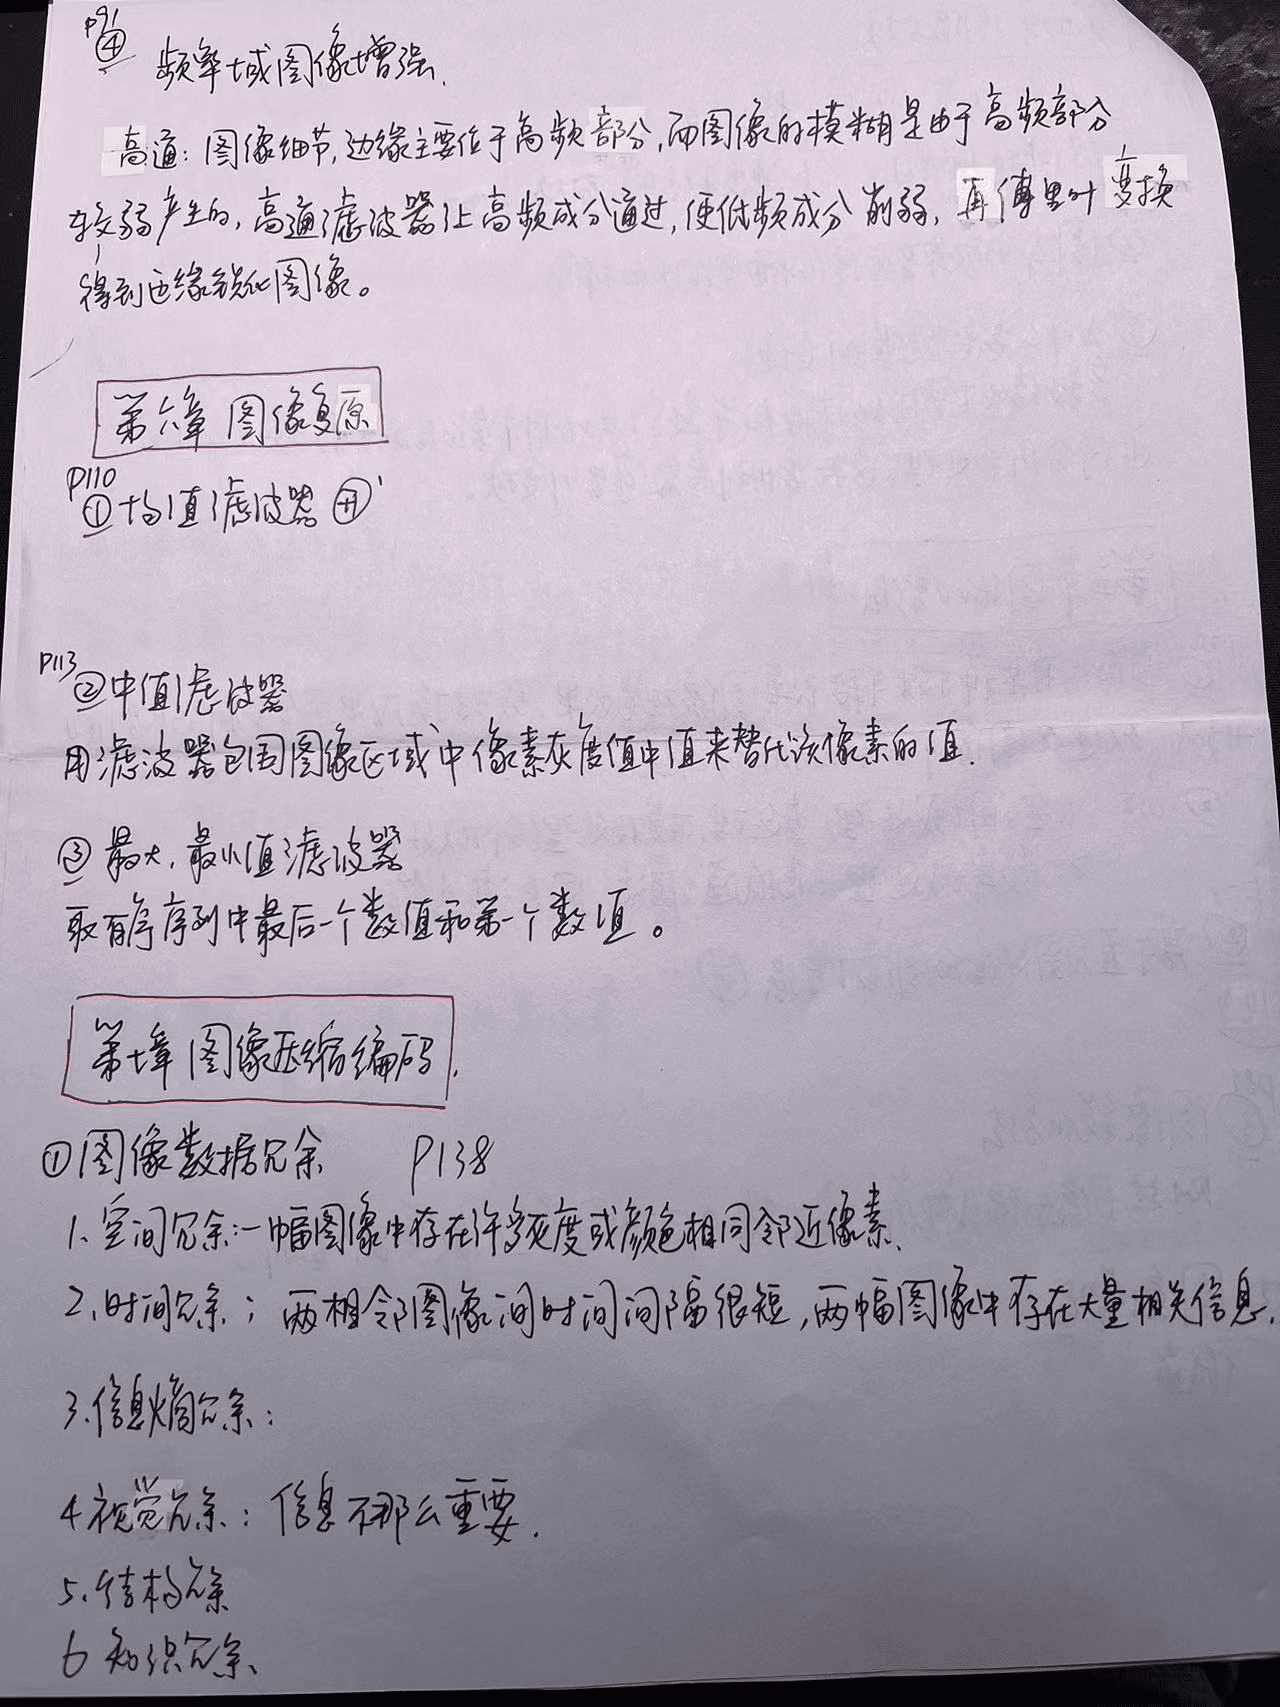 P91
④ 频率域图像增强.
高通：图像细节,边缘主要位于高频部分,而图像的模糊是由于高频部分
较弱产生的,高通滤波器让高频成分通过,使低频成分削弱,再傅里叶变换
得到边缘锐化图像。
第六章 图像复原
P110
①均值滤波器
P113
②中值滤波器
用滤波器包围图像区域中像素灰度值中值来替代该像素的值.
③最大,最小值滤波器
取有序序列中最后一个数值和第一个数值。
第七章 图像压缩编码.
①图像数据冗余 P138
1.空间冗余:一幅图像中存在许多灰度或颜色相同邻近像素.
2.时间冗余；两相邻图像间时间间隔很短,两幅图像中存在大量相关信息.
3.信息熵冗余：
4.视觉冗余：信息不那么重要.
5.结构冗余
6 知识冗余.